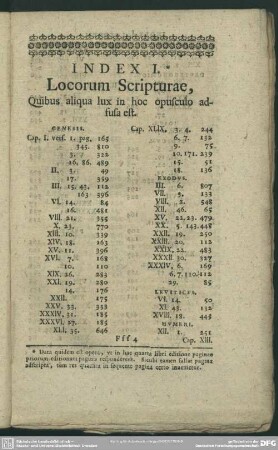 INDEX I.*
Locorum Scripturae,
Quibus aliqua lux in hoc opusculo ad-
fusa est.
GENESIS.
Cap. I. vers. 1. pag. 165
345. 810
3. 322
16, 86. 489
II. 3. 49
17. 359
III. 15. 43. 112
163 396
VI. 14. 84
16. 481
VIII 21. 355
X. 23. 770
XII. 10. 339
XIV. 18. 163
XV. 11. 390
XVI. 7. 168
10. 110
XIX 26. 283
XXI. 19. 280
14. 176
XXII. 175
XXV. 33. 352
XXXIV. 31. 135
XXXVI. 27. 185
XLI. 35. 646
Cap. XLIX. 3. 4. 244
6, 7. 132
9. 75.
10. 171. 239
15. 51
18. 136
EXODUS.
III. 6. 807
VII. 9. 131
VIII. 2. 548
XII. 46. 65
XV. 22, 23. 479
XX. 5. 143. 428
XXII. 19. 250
XXIII. 20. 112
XXIX. 23. 483
XXXII 30. 327
XXXIV. 6. 169
6, 7. 110. 112
29. 85
LEVITICUS.
VI. 14. 50
XI. 45. 132
XVIII. 18. 445
NUMERI.
XII. 1. 251
Fff 4
Cap. XIII.
* Data quidem est opera, ut in hac quarta libri editione paginae
priorum editionum paginis responderent. Sicubi tamen fallat pagina
adscripta, tum res quaesita in sequente pagina certo invenietur.